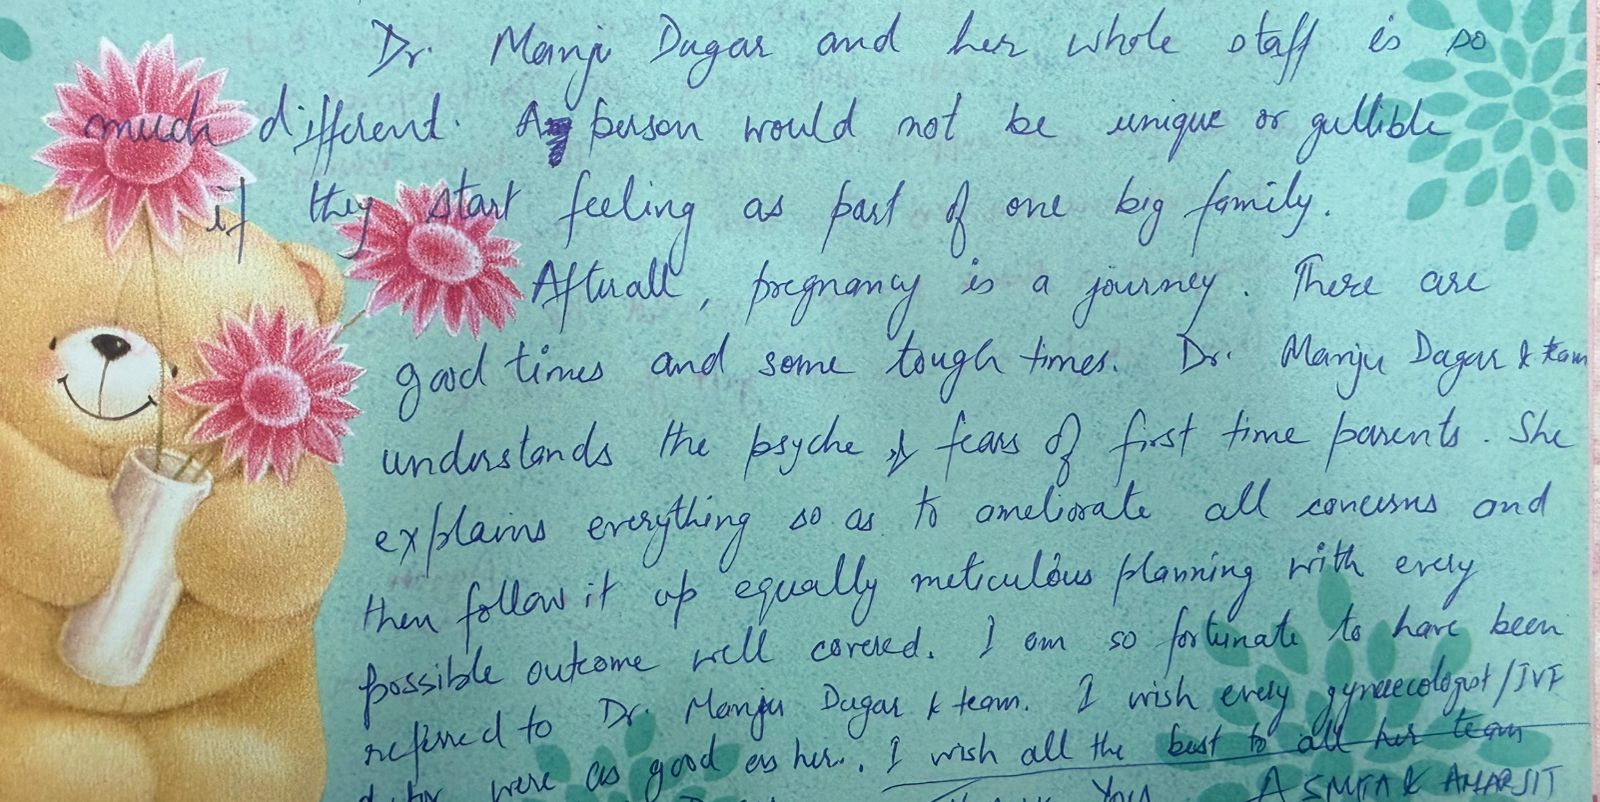 Dr. Manju Dagar and her whole staff is so
much different. A person would not be unique or gullible
if they start feeling as part of one big family.
Afterall, pregnancy is a journey. There are
good times and some tough times. Dr. Manju Dagar & team
understands the psyche & fears of first time parents. She
explains everything so as to ameliorate all concerns and
then follow it up equally meticulous planning with every
possible outcome well covered. I am so fortunate to have been
referred to Dr. Manju Dagar & team. I wish every gynaecologist/IVF
doctor were as good as her. I wish all the best to all her team
Thank You ASMITA & AMARJIT